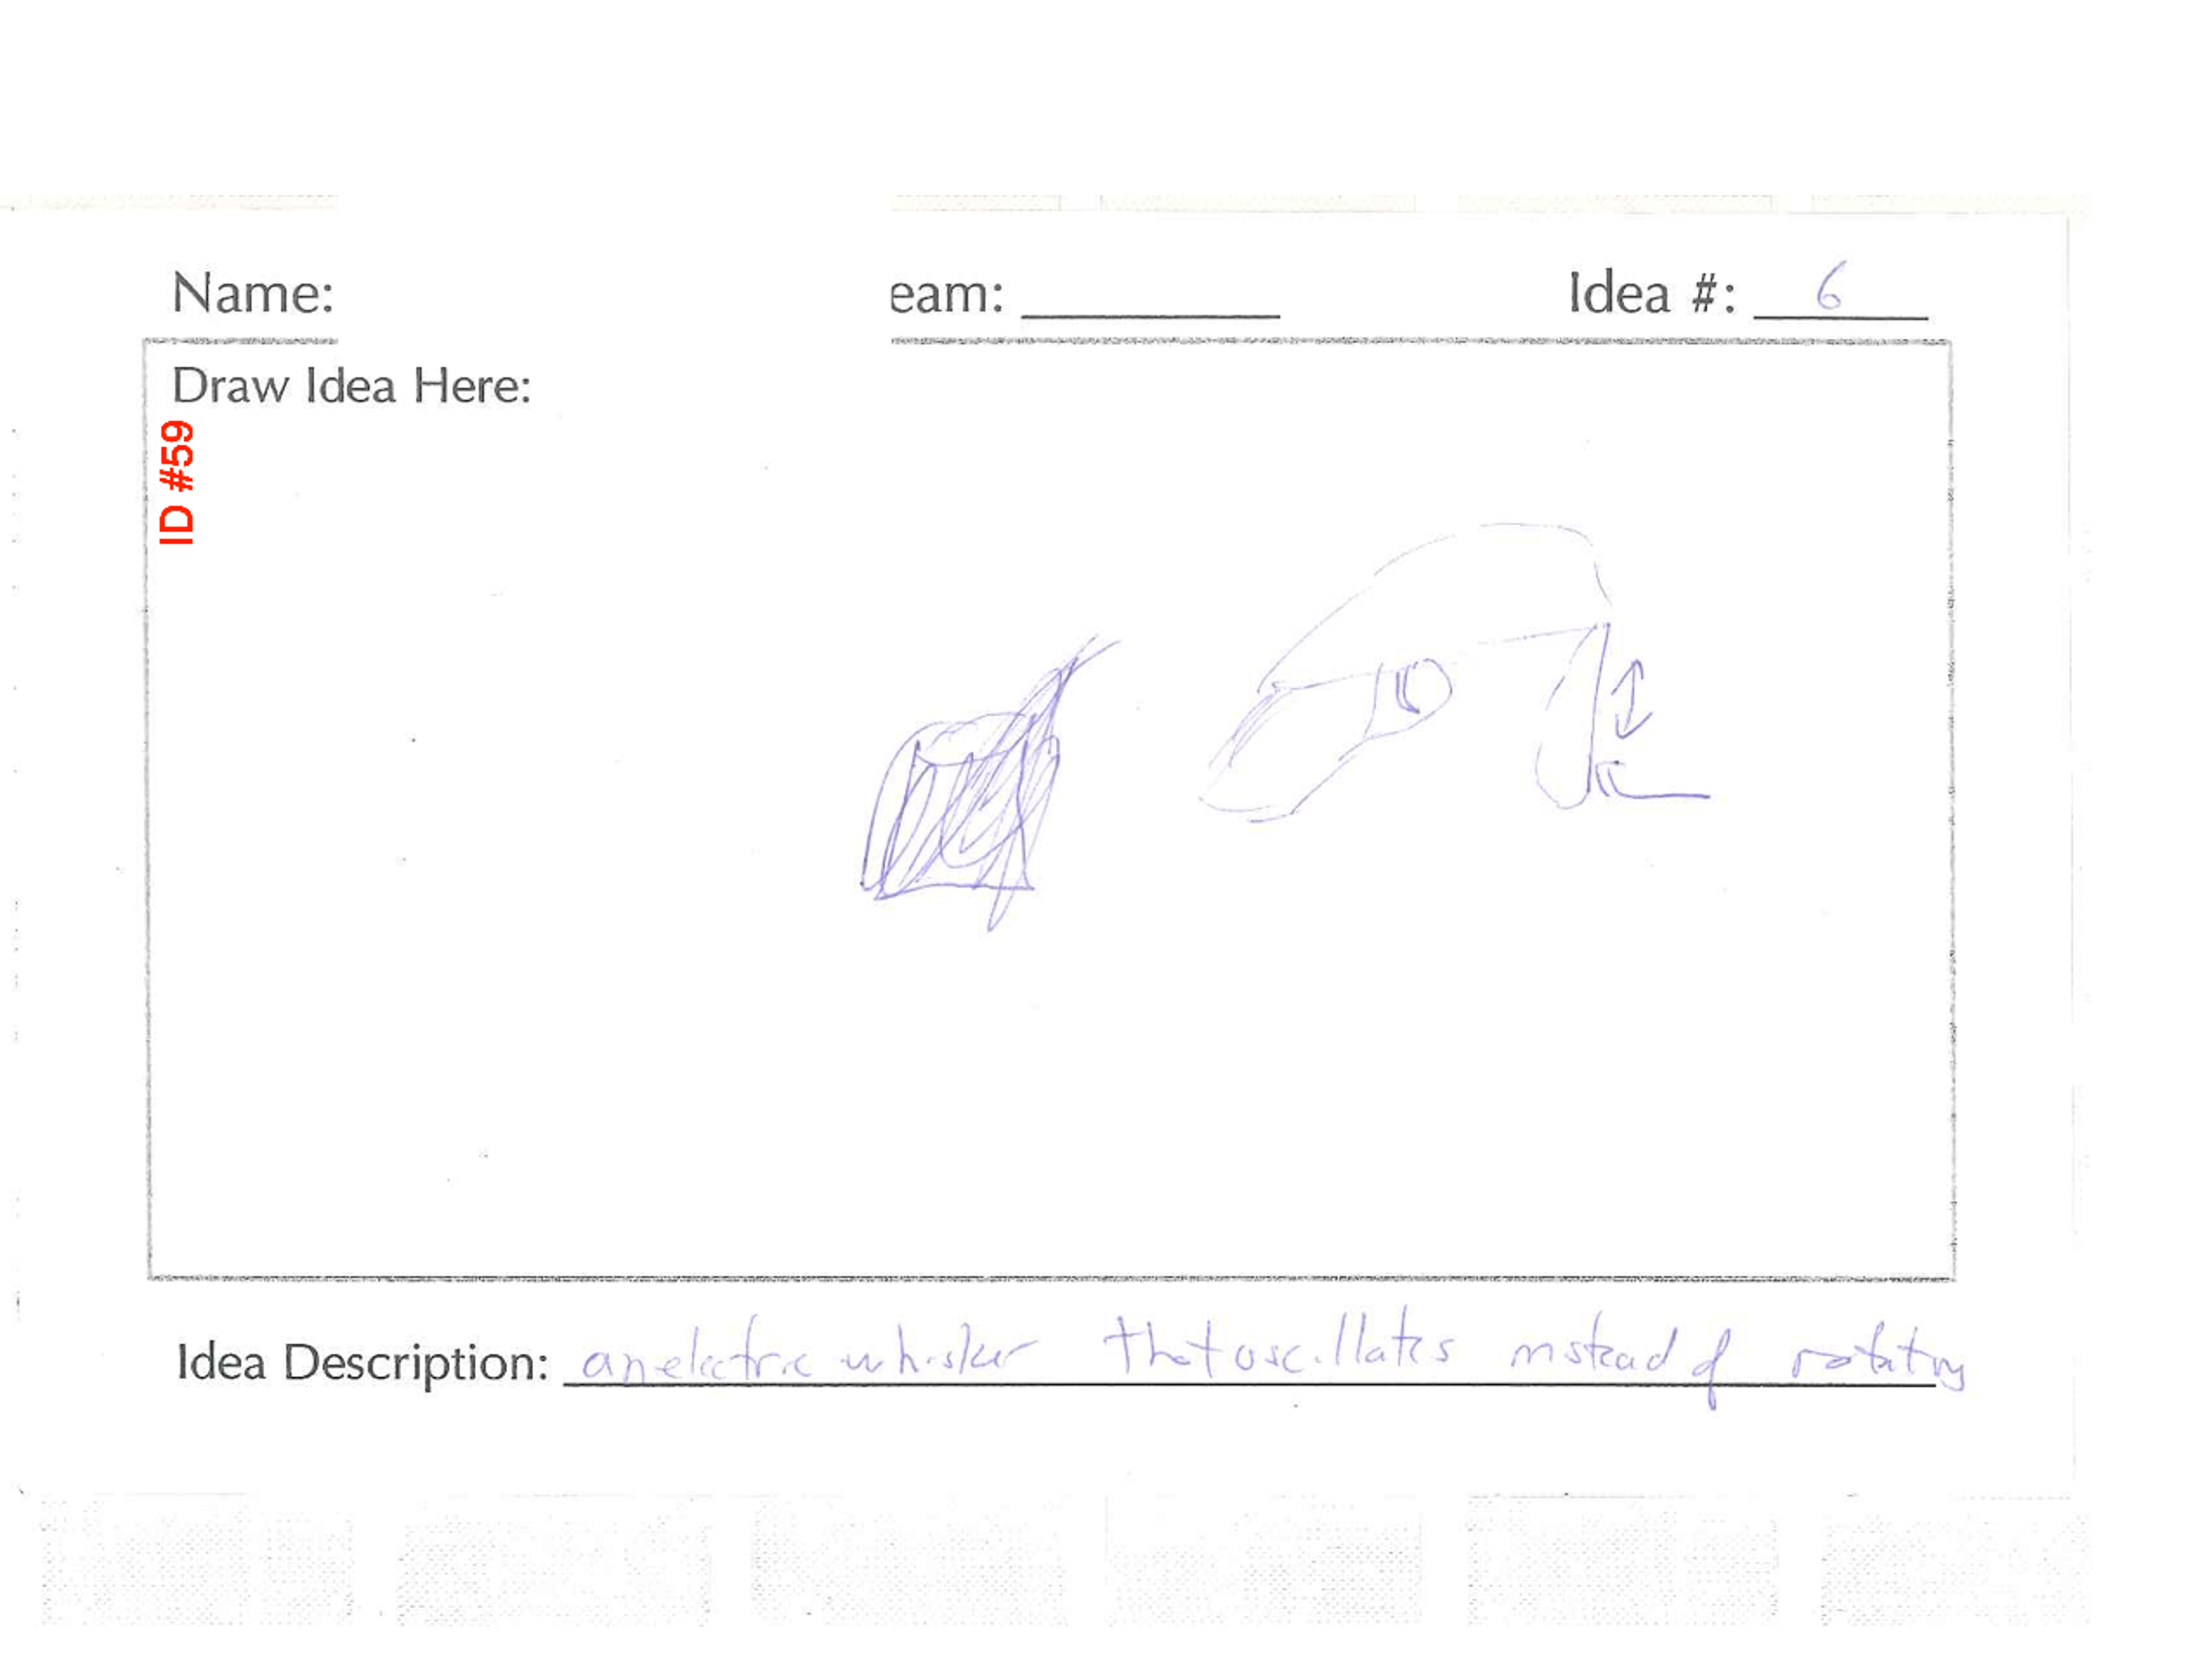 Name: eam: Idea #: 6
Draw Idea Here:
ID #59
Idea Description: an electric whisker that oscillates instead of rotating